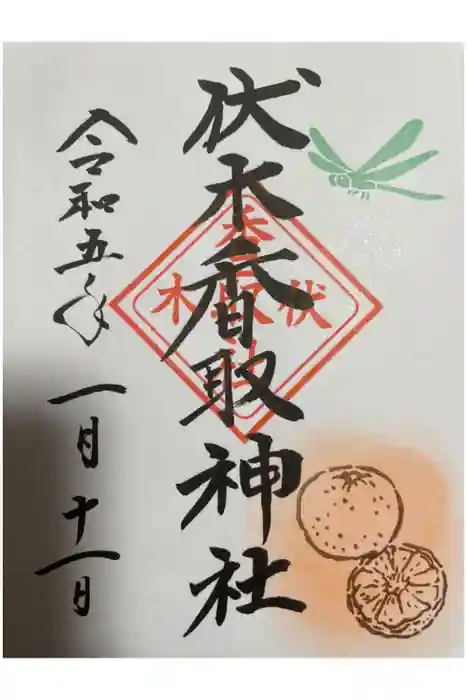 伏木香取神社
令和五年 一月十一日
伏木